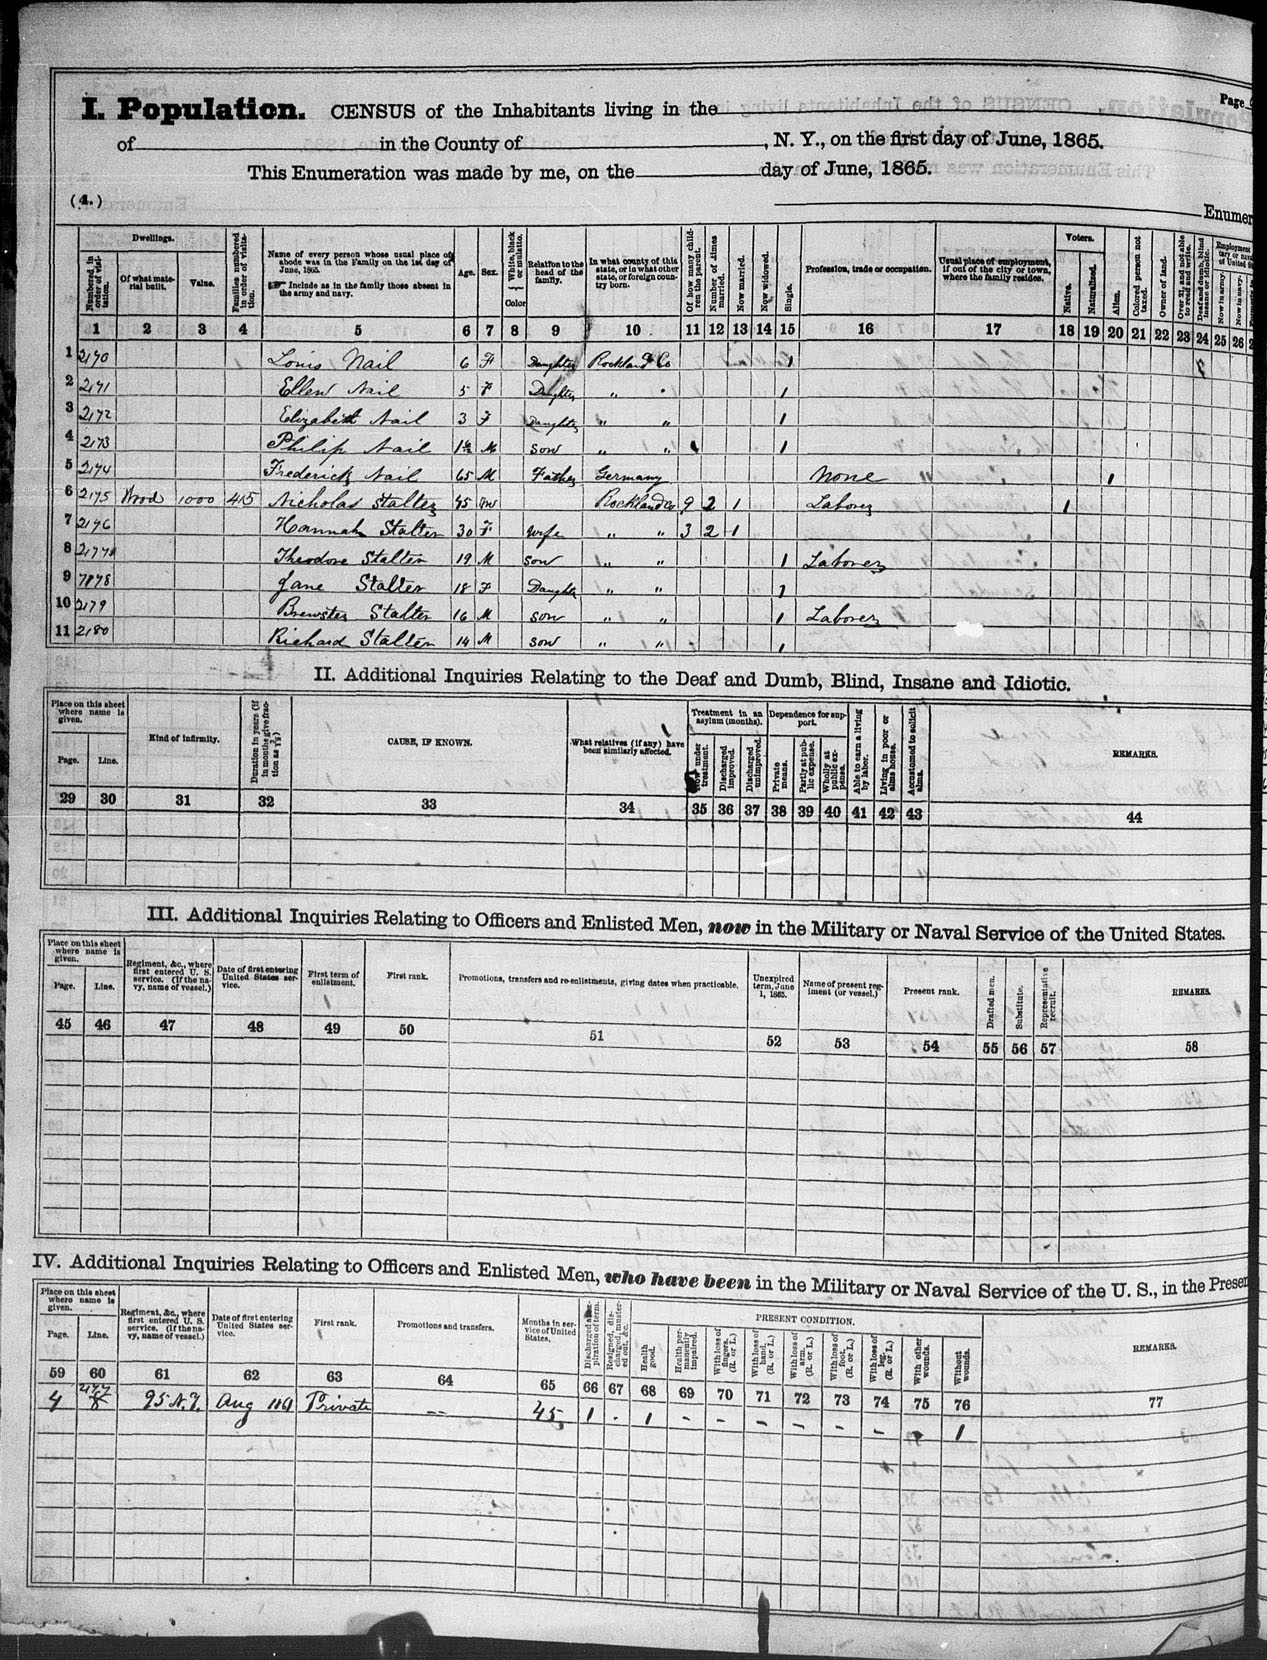 Page
I. Population. CENSUS of the Inhabitants living in the
of in the County of , N. Y., on the first day of June, 1865.
This Enumeration was made by me, on the day of June, 1865.
(4.)
Enumer
Dwellings.
Numbered, in order of visitation.
Of what material built.
Value.
Families numbered in order of visitation.
Name of every person whose usual place of abode was in the Family on the 1st day of June, 1865.
Include as in the family those absent in the army and navy.
Age.
Sex.
White, black or mulatto.
Color
Relation to the head of the family.
In what county of this state, or in what other state, or foreign country born.
Of how many children the parent.
Number of times married.
Now married.
Now widowed.
Single.
Profession, trade or occupation.
Usual place of employment, if out of the city or town, where the family resides.
Voters.
Native.
Naturalized.
Alien.
Colored person not taxed.
Owner of land.
Over 21, and not able to read and write.
Deaf and dumb, blind insane or idiotic.
Now in army.
Now in navy.
1 2 3 4 5 6 7 8 9 10 11 12 13 14 15 16 17 18 19 20 21 22 23 24 25 26 2
1 2170 Louis Nail 6 F Daughter Rockland Co 1
2 2171 Ellen Nail 5 F Daughter " " 1
3 2172 Elizabeth Nail 3 F Daughter " " 1
4 2173 Philip Nail M son " " 1
5 2174 Frederick Nail 65 M Father Germany None 1
6 2175 Wood 1000 415 Nicholas Stalter 45 M Rockland Co 9 2 1 Laborer 1
7 2176 Hannah Stalter 30 F wife " " 3 2 1
8 2177 Theodore Stalter 19 M son " " 1 Laborer
9 7878 Jane Stalter 18 F Daughter " " 1
10 2179 Brewster Stalter 16 M son " " 1 Laborer
11 2180 Richard Stalter 14 M son " " 1
II. Additional Inquiries Relating to the Deaf and Dumb, Blind, Insane and Idiotic.
Place on this sheet where name is given.
Page.
Line.
Kind of infirmity.
Duration in years (if in months give fraction as
CAUSE, IF KNOWN.
What relatives (if any) have been similarly affected.
Treatment in an asylum (months).
Now under treatment.
Discharged improved.
Discharged unimproved.
Dependence for support.
Private means.
Partly at public expense.
Wholly at public expense.
Able to earn a living by labor.
Living in poor or alms house.
Accustomed to solicit alms.
REMARKS.
29 30 31 32 33 34 35 36 37 38 39 40 41 42 43 44
III. Additional Inquiries Relating to Officers and Enlisted Men, now in the Military or Naval Service of the United States.
Place on this sheet where name is given.
Page.
Line.
Regiment, &c., where first entered U. S. service. (If the navy, name of vessel.)
Date of first entering United States service.
First term of enlistment.
First rank.
Promotions, transfers and re-enlistments, giving dates when practicable.
Unexpired term, June 1, 1865.
Name of present regiment (or vessel.)
Present rank.
Drafted men.
Substitute.
Representative recruit.
REMARKS.
45 46 47 48 49 50 51 52 53 54 55 56 57 58
IV. Additional Inquiries Relating to Officers and Enlisted Men, who have been in the Military or Naval Service of the U. S., in the Presen
Place on this sheet where name is given.
Page.
Line.
Regiment, &c., where first entered U. S. service. (If the navy, name of vessel.)
Date of first entering United States service.
First rank.
Promotions and transfers.
Months in service of United States.
Discharged expiration of term.
Resigned, discharged, mustered out, &c.
PRESENT CONDITION.
Health good.
Health permanently impaired.
With loss of fingers. (R. or L.)
With loss of hand. (R. or L.)
With loss of arm. (R. or L.)
With loss of foot. (R. or L.)
With loss of leg. (R. or L.)
With other wounds.
Without wounds.
REMARKS.
59 60 61 62 63 64 65 66 67 68 69 70 71 72 73 74 75 76 77
4 2177 8 95 N.Y. Aug Private — 45 1 . 1 – – – – – – – 1